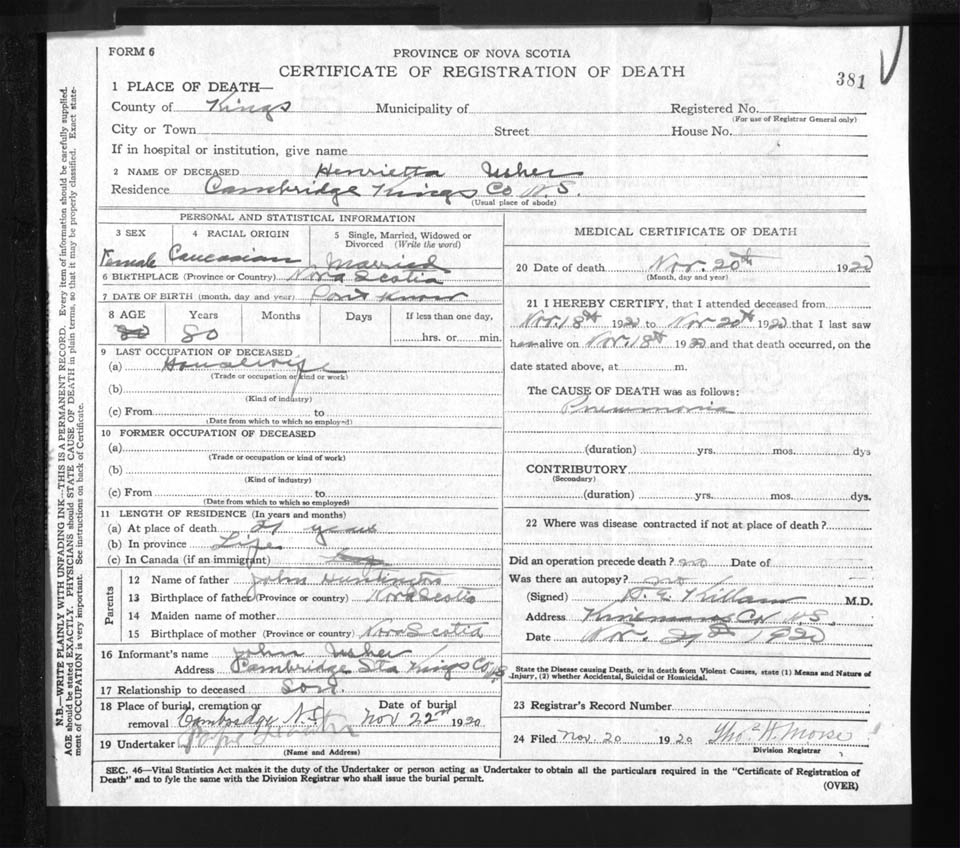 FORM 6
PROVINCE OF NOVA SCOTIA
CERTIFICATE OF REGISTRATION OF DEATH
381
1 PLACE OF DEATH—
County of Kings Municipality of Registered No.
(For use of Registrar General only)
City or Town Street House No.
If in hospital or institution, give name
2 NAME OF DECEASED Henrietta Usher
Residence Cambridge Kings Co N.S.
(Usual place of abode)
PERSONAL AND STATISTICAL INFORMATION
3 SEX 4 RACIAL ORIGIN 5 Single, Married, Widowed or Divorced (Write the word)
Female Caucasian Married
6 BIRTHPLACE (Province or Country) Nova Scotia
7 DATE OF BIRTH (month, day and year) Don't Know
8 AGE Years Months Days If less than one day,
80 hrs. or min.
9 LAST OCCUPATION OF DECEASED
(a) Housewife
(Trade or occupation or kind or work)
(b)
(Kind of industry)
(c) From to
(Date from which to which so employed)
10 FORMER OCCUPATION OF DECEASED
(a)
(Trade or occupation or kind of work)
(b)
(Kind of industry)
(c) From to
(Date from which to which so employed)
11 LENGTH OF RESIDENCE (In years and months)
(a) At place of death 21 years
(b) In province Life
(c) In Canada (if an immigrant)
Parents
12 Name of father John Huntington
13 Birthplace of father (Province or country) Nova Scotia
14 Maiden name of mother
15 Birthplace of mother (Province or country) Nova Scotia
16 Informant's name John Usher
Address Cambridge Sta Kings Co NS
17 Relationship to deceased son.
18 Place of burial, cremation or removal Cambridge N.S. Date of burial Nov 22nd 1920
19 Undertaker
(Name and Address)
MEDICAL CERTIFICATE OF DEATH
20 Date of death Nov. 20th 1920
(Month, day and year)
21 I HEREBY CERTIFY, that I attended deceased from
Nov. 18th 1920 to Nov 20th 1920 that I last saw
her alive on Nov. 18th 1920 and that death occurred, on the
date stated above, at m.
The CAUSE OF DEATH was as follows:
Pneumonia
(duration) yrs. mos. dys
CONTRIBUTORY
(Secondary)
(duration) yrs. mos. dys.
22 Where was disease contracted if not at place of death?
Did an operation precede death? no Date of
Was there an autopsy? no
(Signed) H. E. Killam M.D.
Address Kinsmans Cor N.S.
Date Nov. 29th 1920
State the Disease causing Death, or in death from Violent Causes, state (1) Means and Nature of
Injury, (2) whether Accidental, Suicidal or Homicidal.
23 Registrar's Record Number
24 Filed Nov. 20 1920 Thos. H. Morse
Division Registrar
SEC. 46—Vital Statistics Act makes it the duty of the Undertaker or person acting as Undertaker to obtain all the particulars required in the "Certificate of Registration of
Death" and to fyle the same with the Division Registrar who shall issue the burial permit.
(OVER)
N.B.—WRITE PLAINLY WITH UNFADING INK—THIS IS A PERMANENT RECORD. Every item of information should be carefully supplied.
AGE should be stated EXACTLY. PHYSICIANS should STATE CAUSE OF DEATH in plain terms, so that it may be properly classified. Exact state-
ment of OCCUPATION is very important. See instruction on back of Certificate.